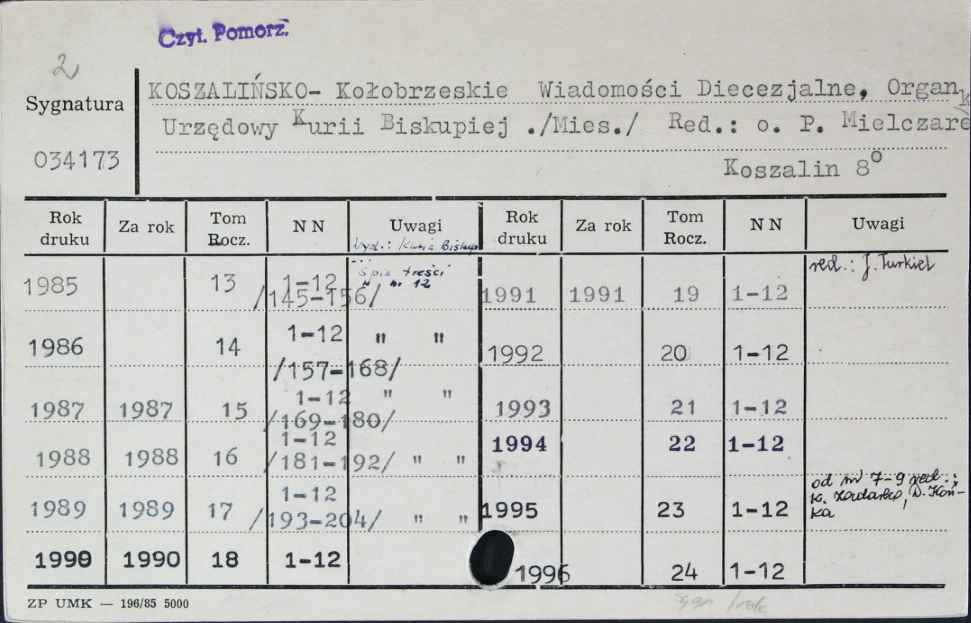 Czyt. Pomorz.
2
Sygnatura
034173
KOSZALIŃSKO- Kołobrzeskie Wiadomości Diecezjalne, Organ
Urzędowy Kurii Biskupiej ./Mies./ Red.: o. P. Mielczarek
Koszalin 8o
Rok druku Za rok Tom Rocz. NN Uwagi Rok druku Za rok Tom Rocz. NN Uwagi
wyd.: Kuria Biskup.
Spis treści
w nr 12
red.: J. Turkiel
1985 13 1-12 /145-156/ 1991 1991 19 1-12
1986 14 1-12 /157-168/ " " 1992 20 1-12
1987 1987 15 1-12 /169-180/ " " 1993 21 1-12
1988 1988 16 1-12 /181-192/ " " 1994 22 1-12
1989 1989 17 1-12 /193-204/ " " 1995 23 1-12 od nr 7-9 red.:
1990 1990 18 1-12 1996 24 1-12
ZP UMK — 196/85 5000